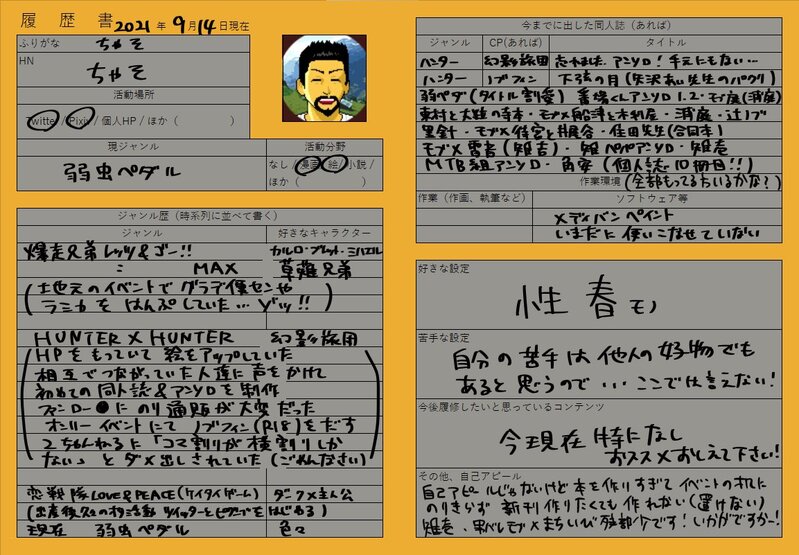 履歴書 2021年 9月14日現在
ふりがな ちゃそ
HN
ちゃそ
活動場所
Twitter / Pixiv / 個人HP / ほか (　　　)
現ジャンル 活動分野
弱虫ペダル
なし / 漫画 / 絵 / 小説 /
ほか (　　　)
ジャンル歴 (時系列に並べて書く)
ジャンル 好きなキャラクター
爆走兄弟レッツ&ゴー!! カルロ・ブレット・ミハエル
〃 MAX 草薙兄弟
(土地元のイベントでグラデ便センや
ラミカをはんぷしていた…ゲッ!!)
HUNTER×HUNTER 幻影旅団
HPをもっていて絵をアップしていた
相互でつながっていた人達に声をかけて
初めての同人誌&アンソロを制作
ファンロー●にのり通販が大変だった
オンリーイベントにてノブフィン(R18)をだす
2ちゃんねるに「コマ割りが横割りしか
ない」とダメ出しされていた(ごめんなさい)
恋戦隊LOVE&PEACE(ケイタイゲーム) ダークメ主人公
(出産後久々のオタ活動 ツイッターとピクシブをはじめる)
現在 弱虫ペダル 色々
今までに出した同人誌 (あれば)
ジャンル CP(あれば) タイトル
ハンター 幻影旅団 忘れました アンソロ!手元にもない…
ハンター ノブフィン 下弦の月(矢沢あい先生のパクリ)
弱ペダ(タイトル割愛) 番場くんアンソロ1.2・モブ庭(浦庭)
東村と大粒の寺本・モブ×船津と木利屋・浦庭・辻ノブ
黒針・モブ×待宮と梶谷・住田先生(合同本)
モブ×雷音(雉壱)・雉ペヤアンソロ・雉壱
MTB組アンソロ・角安(個人誌10冊目!!)
作業環境 (全部もってる方いるかな?)
作業 (作画、執筆など) ソフトウェア等
メディバンペイント
いまだに使いこなせていない
好きな設定
性春モノ
苦手な設定
自分の苦手は他人の好物でも
あると思うので…ここでは言えない!
今後履修したいと思っているコンテンツ
今現在特になし
おススメおしえて下さい!
その他、自己アピール
自己アピールじゃないけど本を作りすぎてイベントの机に
のりきらず 新刊作りたくても作れない(置けない)
雉壱、果バレモブ×まちいび残部少です!いかがですかー!